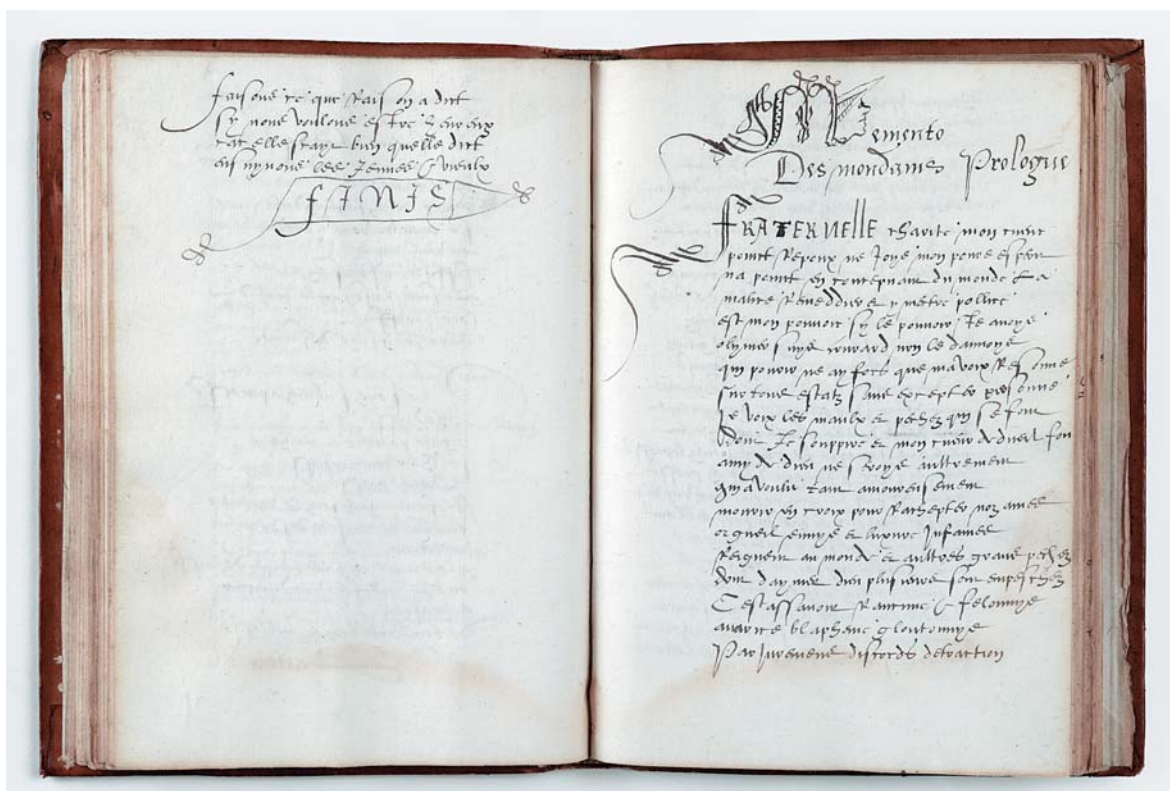 faisons ce que Raison a dict
sy nous voulons estre heureux
car elle scayt bien quelle dict
en mynons les Jeunes & vieulx
FINIS
Memento
Des mondains Prologue
FRATERNELLE charite mon cueur
point Repoux ne Joye mon povre espoir
na point en contepnant du monde La
malice Remeddier et y mettre pollice
est mon pouvoir sy le pouvoir Je avoye
suys non le
qui pouvoir ne ay fors que ma voix Resonne
sur tous estatz sans excepter personne
Je voix les maulx et pechez qui se font
dont Je souppire et mon cueur de dueil fon
amy de dieu ne seroye aultrement
qui a voulu tant amoureusement
mourir en croix pour Rachepter noz ames
orgueil envye et luxure Infames
Regnent au monde et aultres grans pechez
dont daymer dieu plusieurs sont empeschez
Cest assavoir Rancune & felonnye
avarice blapheme gloutonnye
Parjurement discords detraction